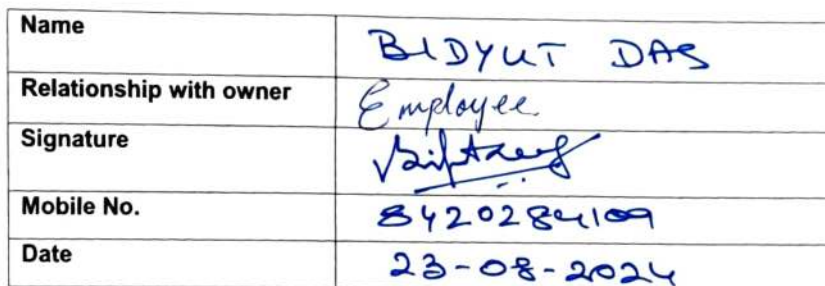 Name BIDYUT DAS
Relationship with owner Employee
Signature
Mobile No. 8420284109
Date 23-08-2024